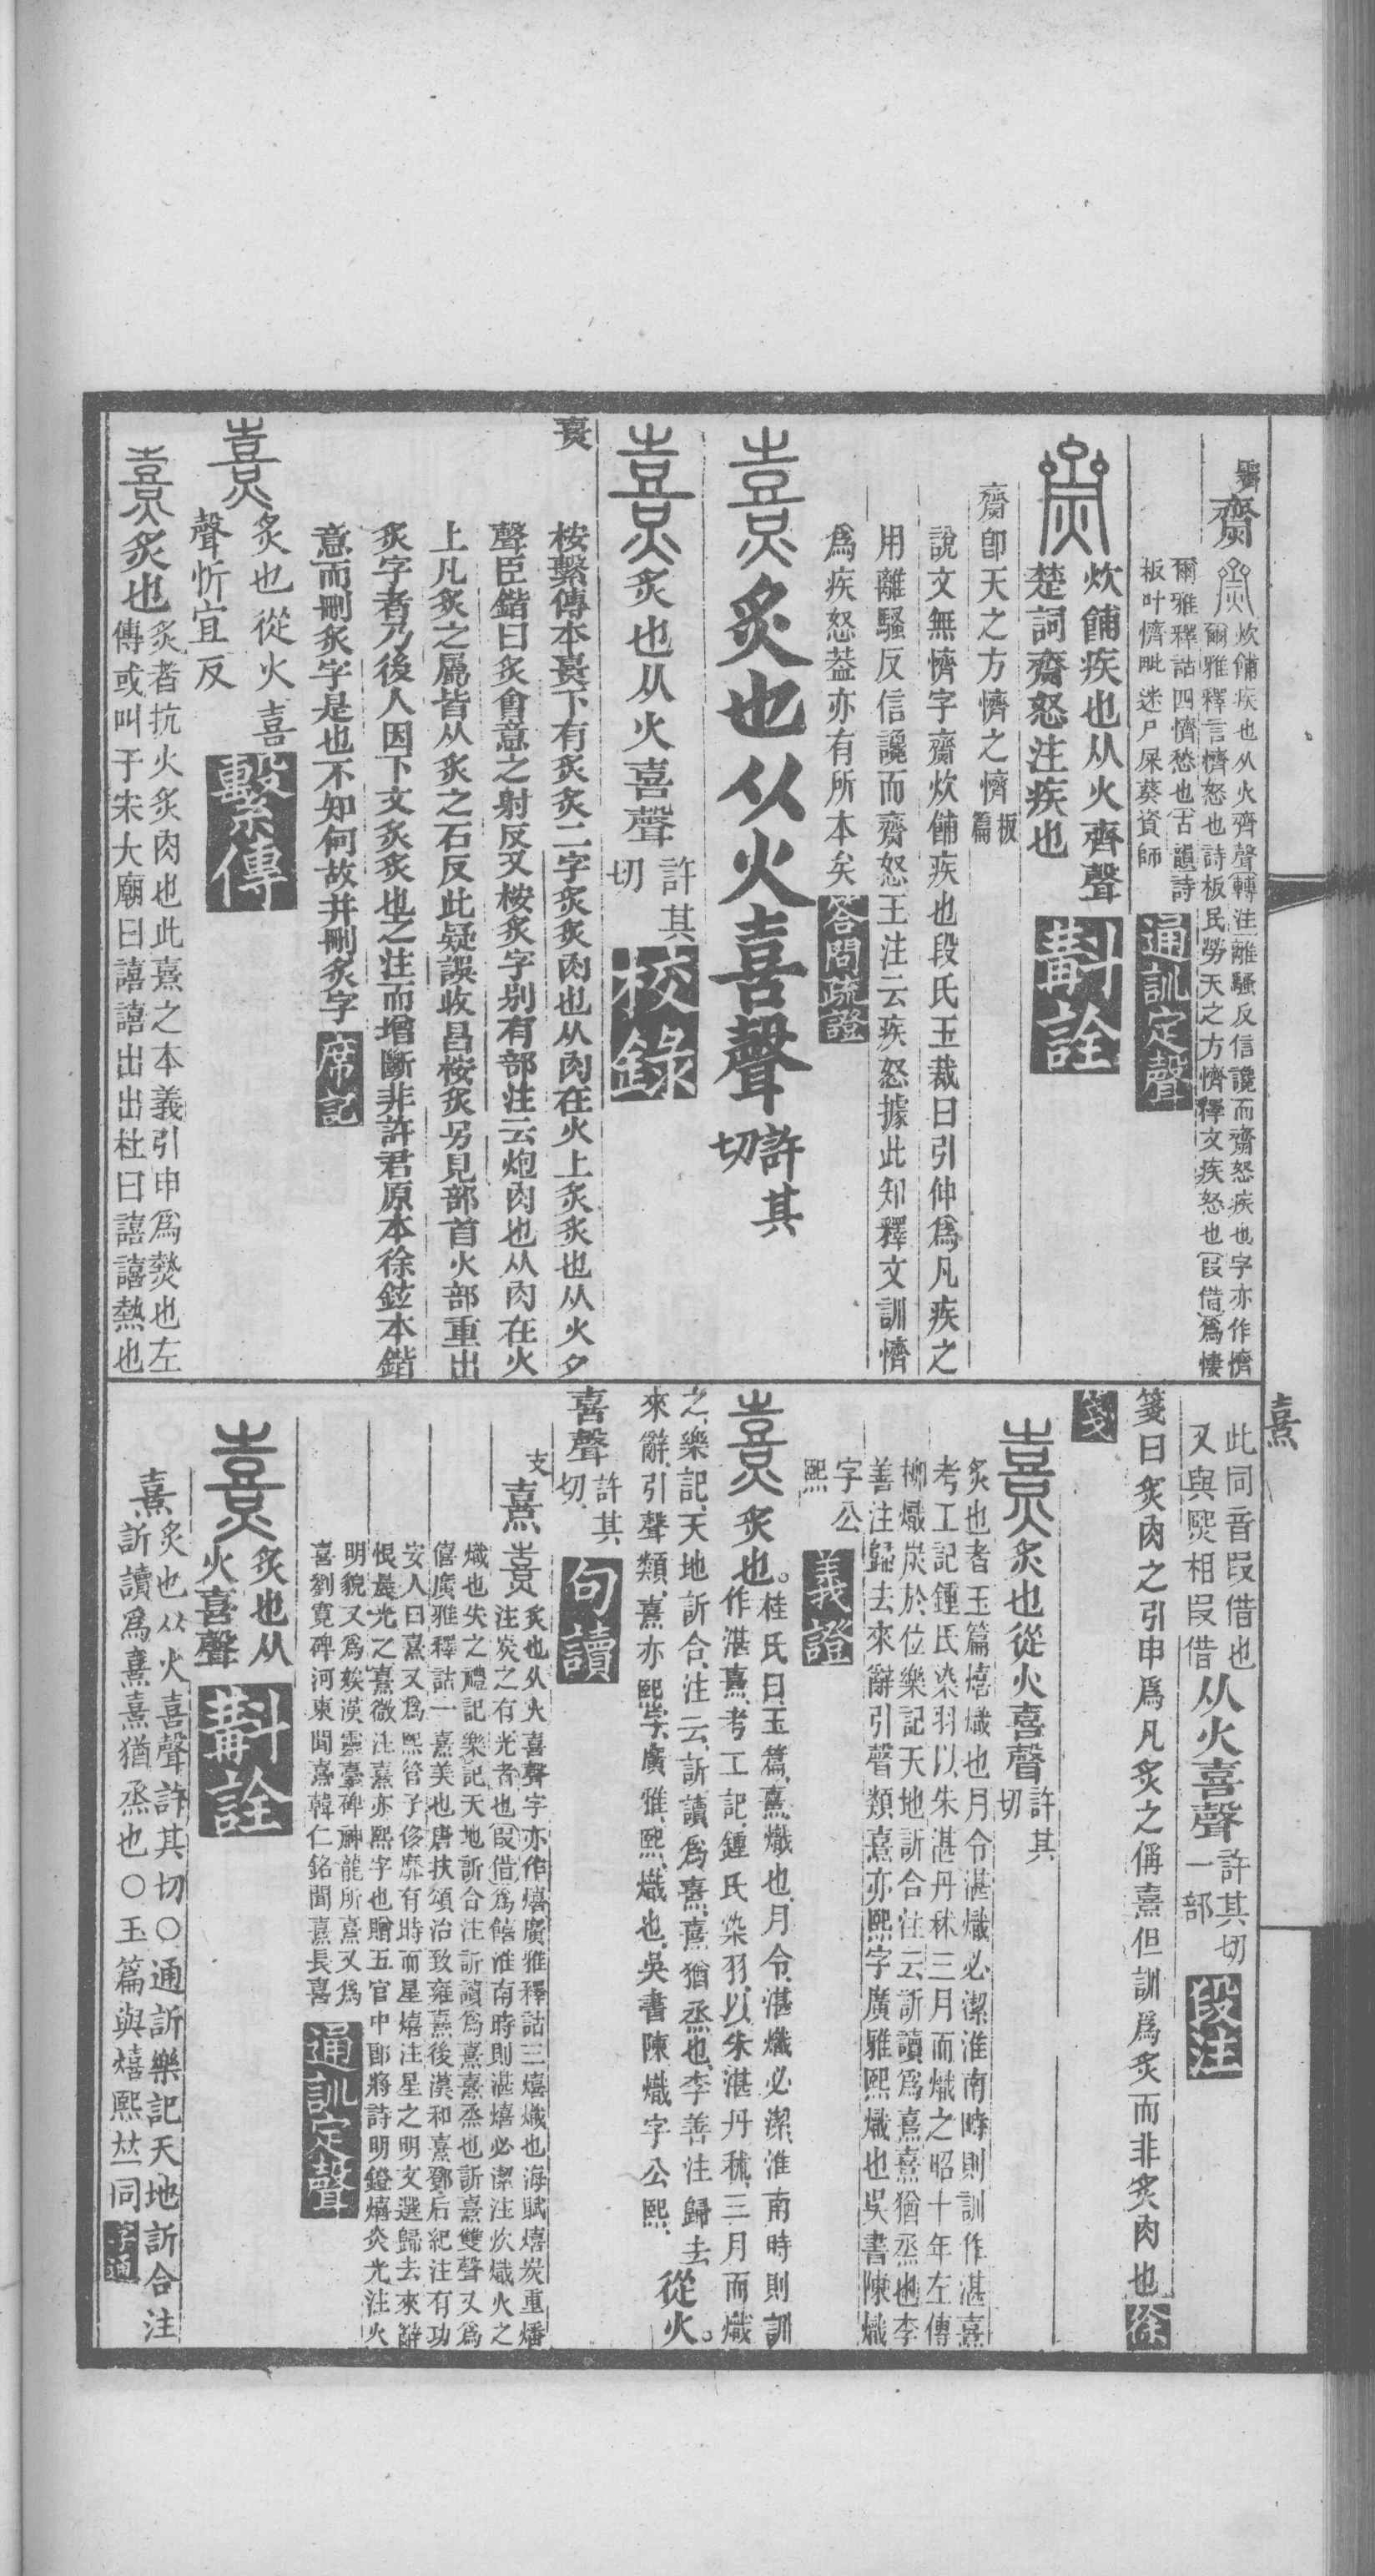 齌 炊餔疾也从火齊聲轉注離騷反信讒而齌怒疾也字亦作懠
爾雅釋言懠怒也詩板民勞天之方懠釋文疾怒也叚借爲悽
爾雅釋詁四懠愁也古韻詩
板叶懠毗迷尸屎葵資師
通訓定聲
炊餔疾也从火齊聲
楚詞齌怒注疾也
斠詮
齌卽天之方懠之懠板篇
說文無懠字齌炊餔疾也段氏玉裁曰引伸爲凡疾之
用離騷反信讒而齌怒王注云疾怒據此知釋文訓懠
爲疾怒葢亦有所本矣
答問疏證
熹 炙也从火喜聲許其切
熹 炙也从火喜聲許其切
校錄
桉繫傳本褱下有炙炙二字炙炙肉也从肉在火上炙炙也从火夕
聲臣鍇曰炙會意之射反又桉炙字别有部注云炮肉也从肉在火
上凡炙之屬皆从炙之石反此疑誤收昌桉炙另見部首火部重出
炙字者乃後人因下文炙炙也之注而增斷非許君原本徐鉉本鍇
意而刪炙字是也不知何故并刪炙字
席記
熹 炙也從火喜
聲忻宜反
繫傳
熹 炙也
炙者抗火炙肉也此熹之本義引申爲熒也左
傳或叫于宋大廟曰譆譆出出杜曰譆譆熱也
熹
此同音叚借也
又與熙相叚借
从火喜聲許其切一部
段注
箋曰炙肉之引申爲凡炙之偁熹但訓爲炙而非炙肉也
徐
箋
熹 炙也從火喜聲許其切
炙也者玉篇熺熾也月令湛熾必潔淮南時則訓作湛熹
考工記鍾氏染羽以朱湛丹秫三月而熾之昭十年左傳
柳熾炭於位樂記天地訢合注云訢讀爲熹熹猶烝也李
善注歸去來辭引聲類熹亦熙字廣雅熙熾也吳書陳熾
字公
熙
義證
熹 炙也。桂氏曰、玉篇、熹、熾也、月令、湛熾必潔、淮南時則訓
作湛熹、考工記、鍾氏染羽、以朱湛丹秫、三月而熾
之、樂記、天地訢合、注云、訢讀爲熹、熹猶烝也、李善注歸去
來辭、引聲類、熹亦熙字、廣雅、熙、熾也、吳書、陳熾字公熙、從火。
喜聲許其切、
句讀
支
熹 炙也从火喜聲字亦作熺廣雅釋詁三熺熾也海賦熺炭重燔
注炭之有光者也叚借爲饎淮南時則湛熺必潔注炊熾火之
熾也失之禮記樂記天地訢合注訢讀爲熹熹烝也訢熹雙聲又爲
僖廣雅釋詁一熹美也唐扶頌治致雍熹後漢和熹鄧后紀注有功
安人曰熹又爲熙管子侈靡有時而星熺注星之明文選歸去來辭
恨晨光之熹微注熹亦熙字也贈五官中郎將詩明鐙熺炎光注火
明貌又爲娭漢靈臺碑神龍所熹又爲
喜劉寬碑河東聞熹韓仁銘聞熹長喜
通訓定聲
熹 炙也从
火喜聲
斠詮
熹 炙也从火喜聲許其切〇通訢樂記天地訢合注
訢讀爲熹熹猶烝也〇玉篇與熺熙竝同
字通